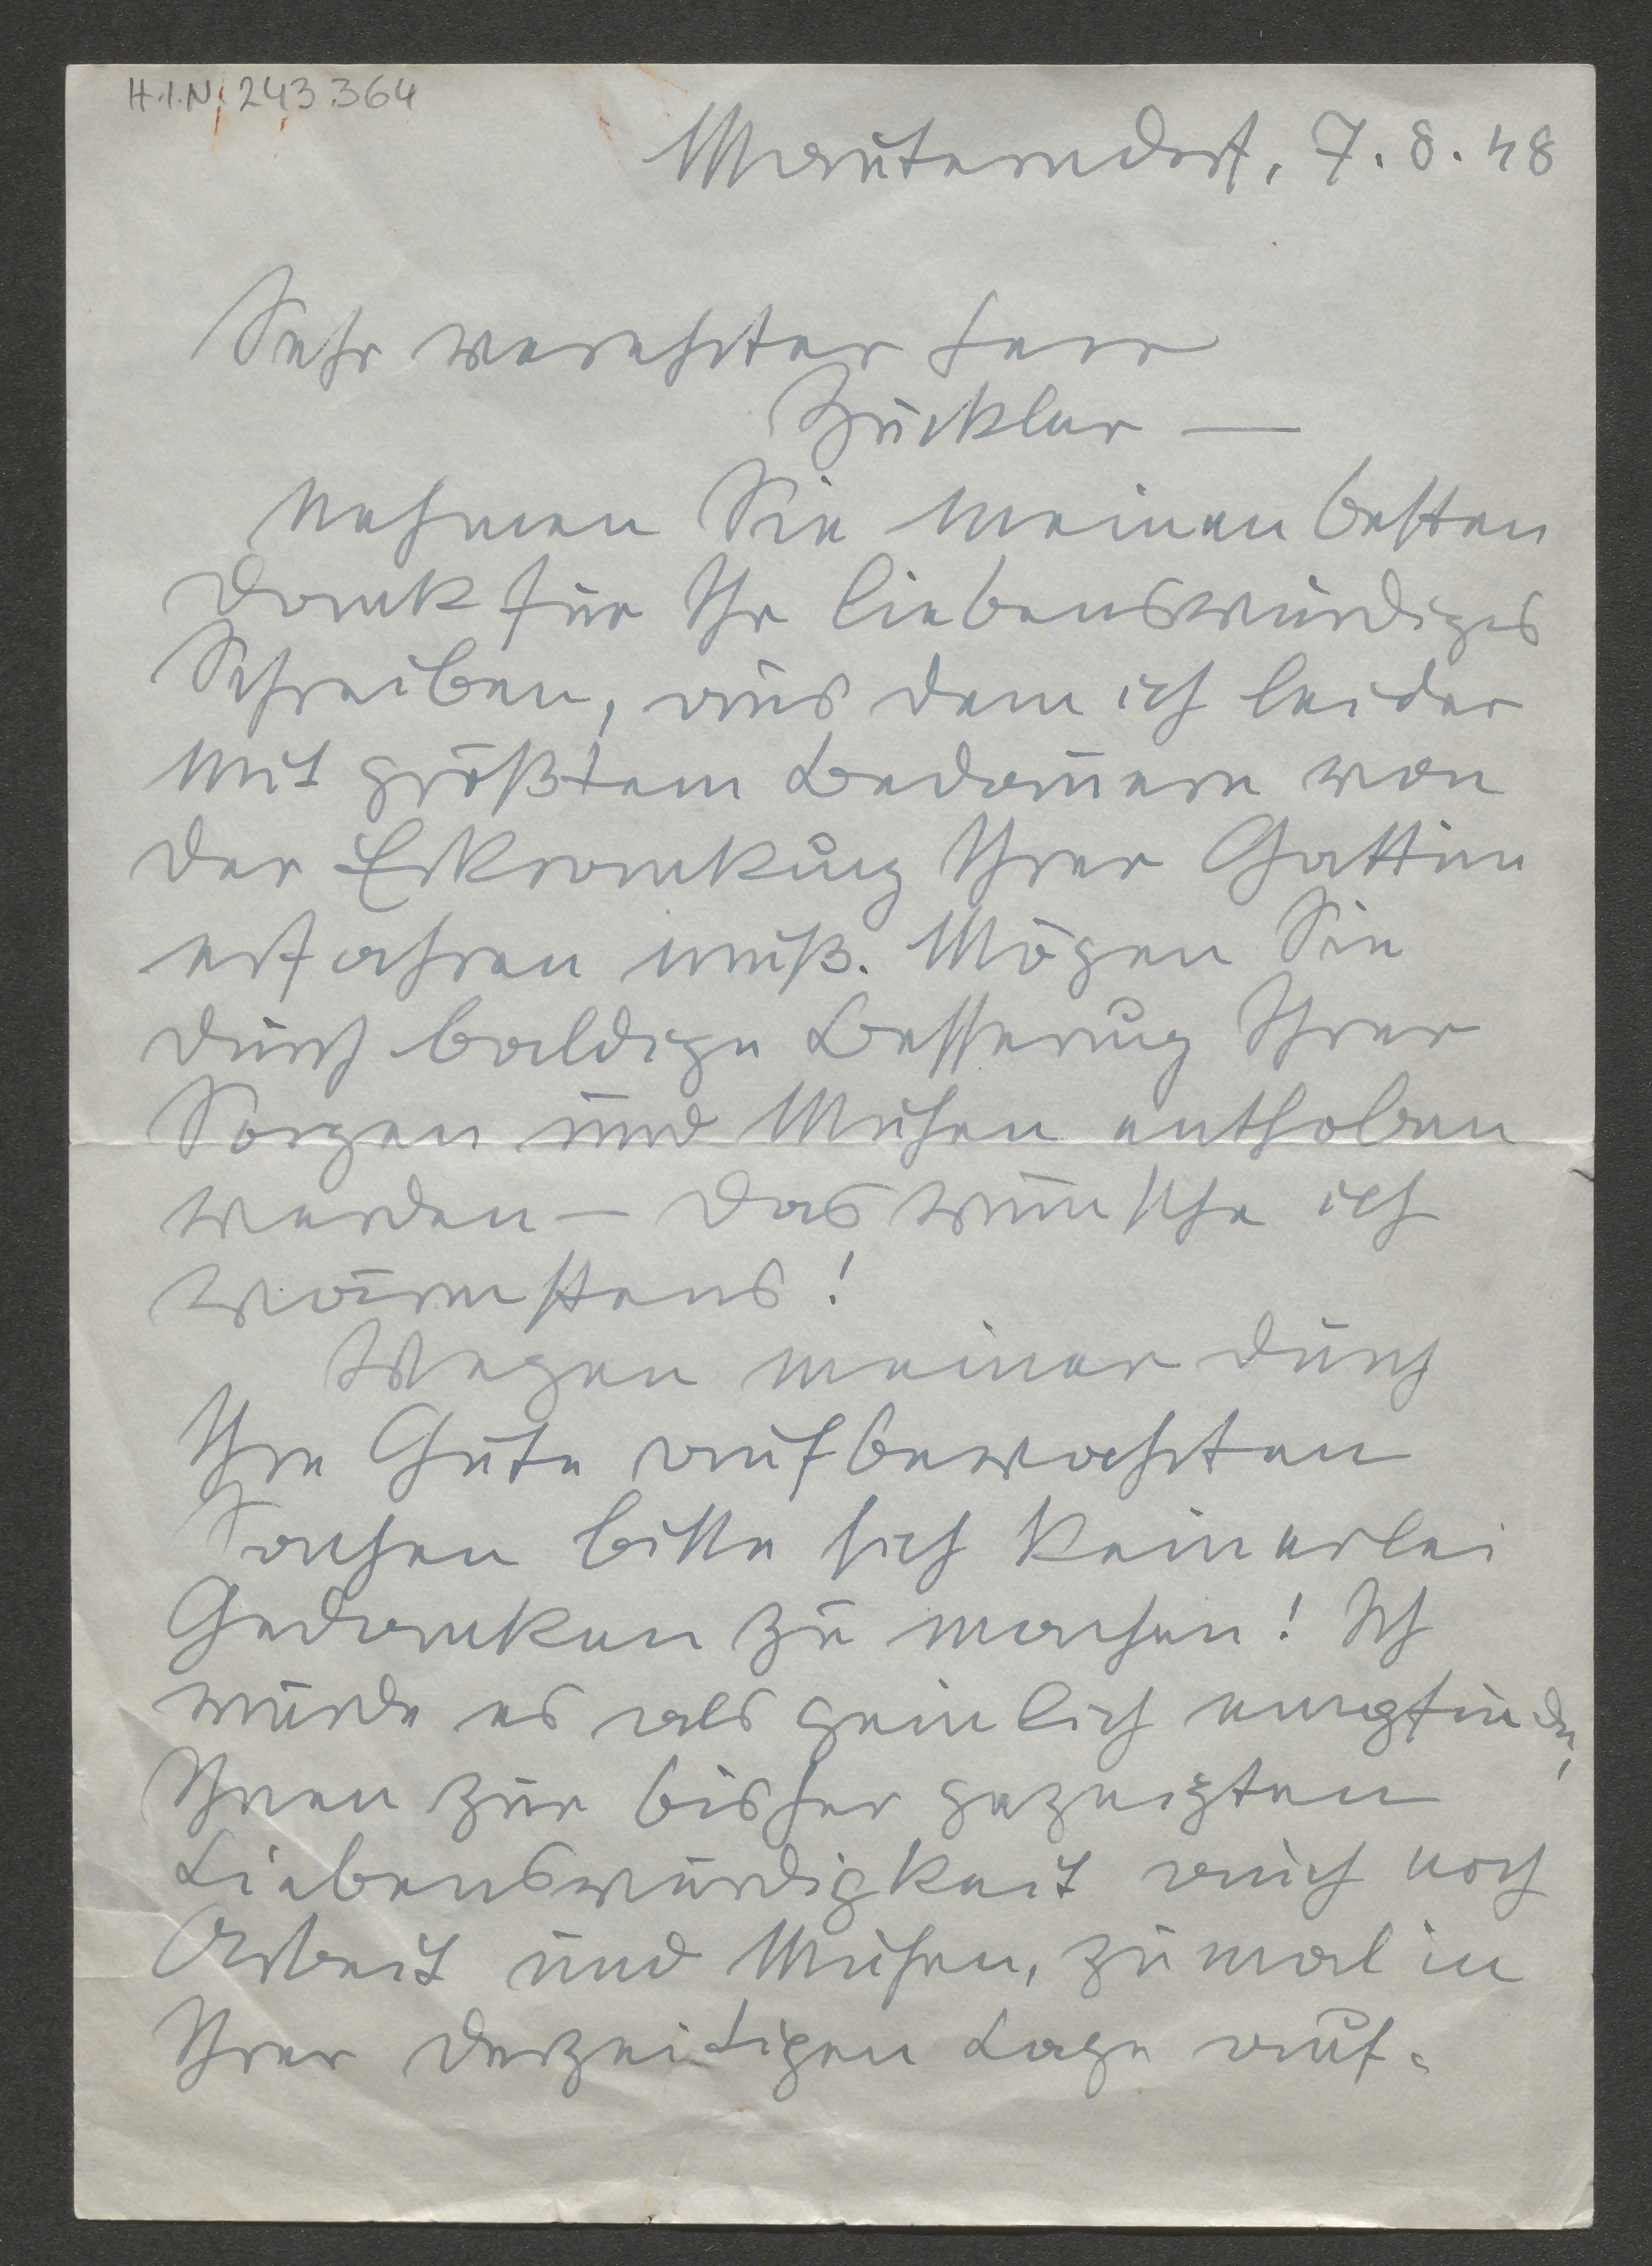 H.I.N. 243364
Mauterndorf, 7.8.48
Sehr verehrter Herr
Zuckler —
Nehmen Sie meinen besten
Dank für Ihr liebenswürdiges
Schreiben, aus dem ich leider
mit größtem Bedauern von
der Erkrankung Ihrer Gattin
erfahren muß. Mögen Sie
durch baldige Besserung Ihrer
Sorgen und Mühen enthoben
werden — das wünsche ich
wärmstens!
Wegen meiner durch
Ihre Güte aufbewahrten
Sachen bitte sich keinerlei
Gedanken zu machen! Ich
würde es als peinlich empfinden,
Ihnen zur bisher gezeigten
Liebenswürdigkeit auch noch
Arbeit und Mühen, zumal in
Ihrer derzeitigen Lage auf-